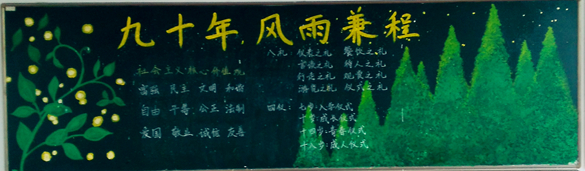 九十年风雨兼程
社会主义核心价值观
富强 民主 文明 和谐
自由 平等 公正 法制
爱国 敬业 诚信 友善
八礼 仪表之礼 餐饮之礼
言谈之礼 待人之礼
行走之礼 观赏之礼
游览之礼 仪式之礼
四仪: 七岁:入学仪式
十岁:成长仪式
十四岁:青春仪式
十八岁:成人仪式